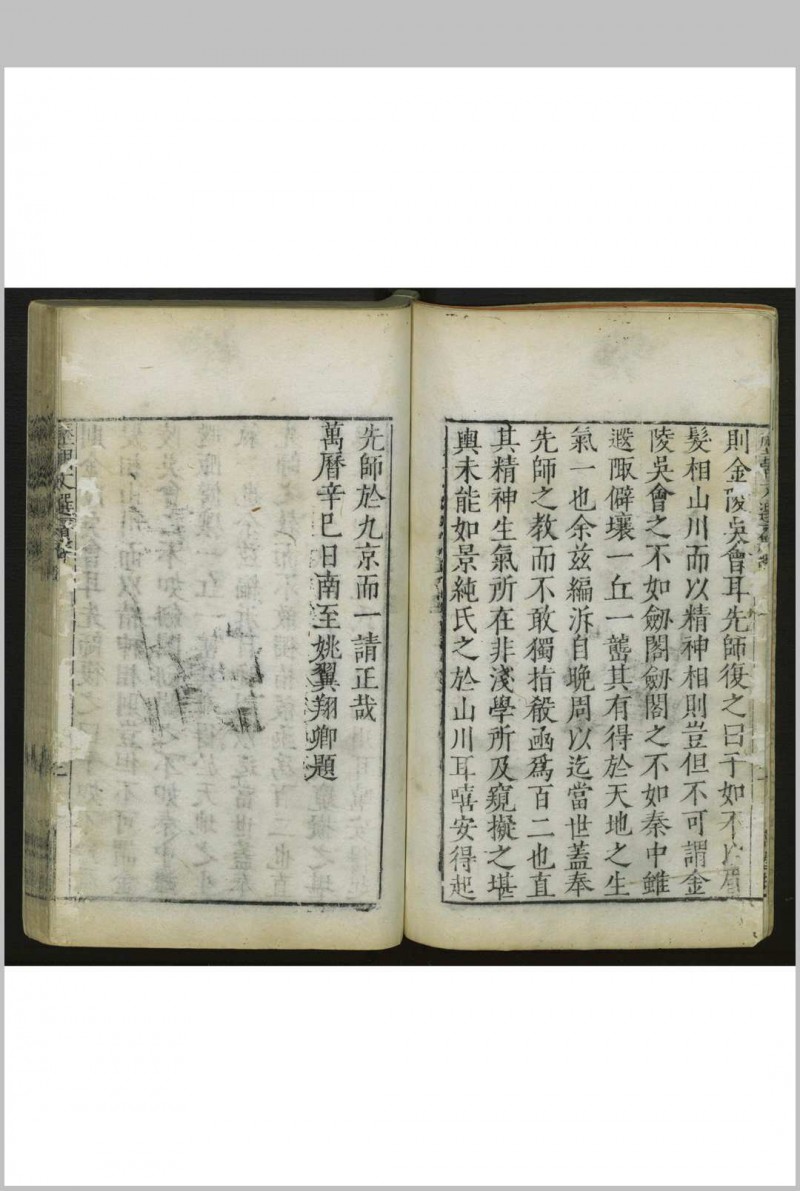 則金陵吳會耳先師復之曰子如不以眉
髮相山川而以精神相則豈但不可謂金
陵吳會之不如劒閣劒閣之不如秦中雖
遐陬僻壤一丘一壑其有得於天地之生
氣一也余茲編泝自晚周以迄當世蓋奉
先師之教而不敢獨指殽函爲百二也直
其精神生氣所在非淺學所及窺擬之堪
輿未能如景純氏之於山川耳嘻安得起
先師於九京而一請正哉
萬曆辛巳日南至姚翼翔卿題